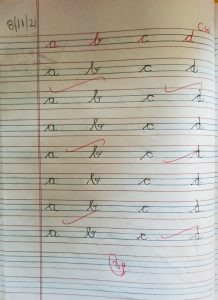 8/11/21
C.W
a b c d
a b c d
a b c d
a b c d
a b c d
a b c d
a b c d